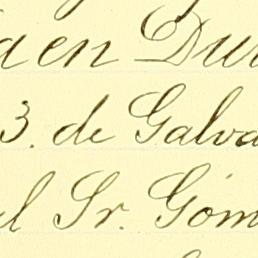 en Du
3. de Galva
el Sr. Góm